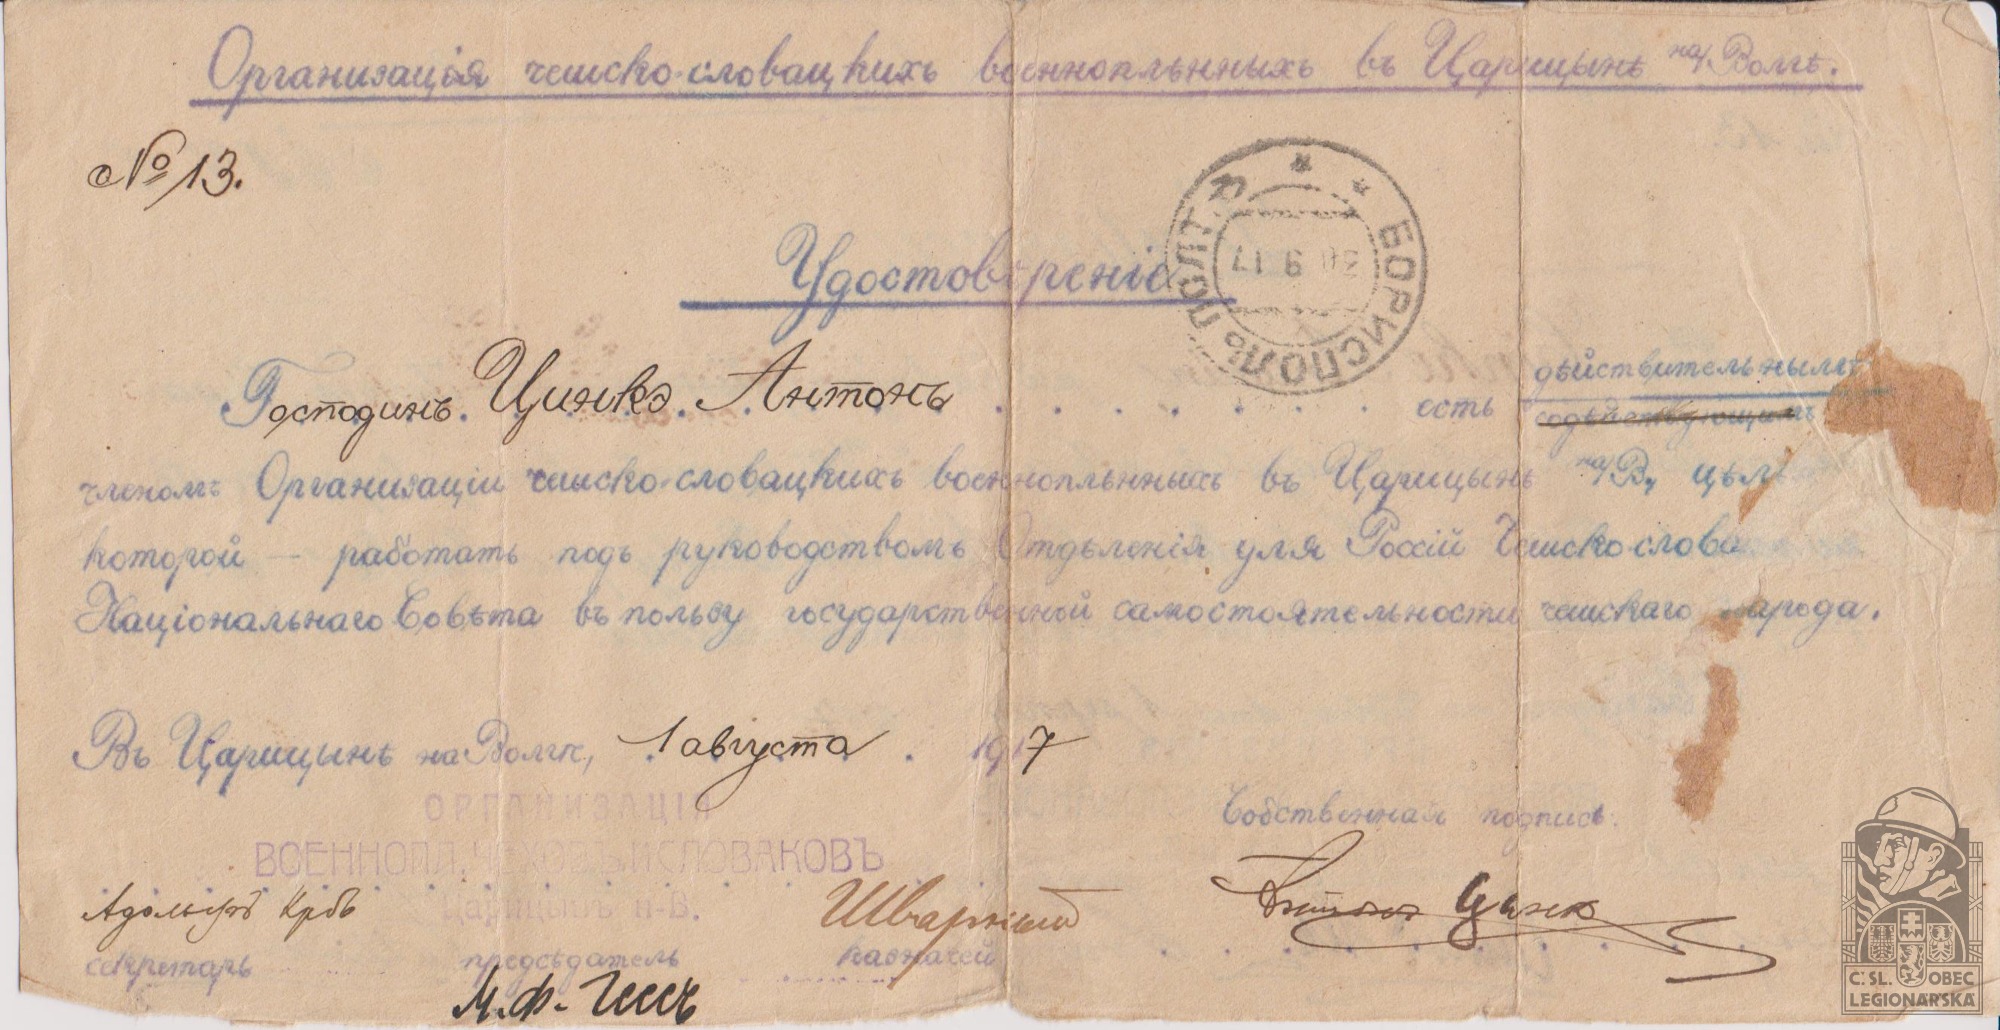 Организація чешско-словацкихъ военноплѣнныхъ въ Царицынѣ на/Волгѣ.
№ 13.
Удостовѣреніе
БОРИСПОЛЬ ПОЛТ.
30 9 17
Господинъ Цинкэ Антонъ есть дѣйствительнымъ
содѣйствующимъ
членомъ Организаціи чешско-словацкихъ военноплѣнныхъ въ Царицынѣ на/В., цѣль
которой — работать подъ руководствомъ Отдѣленія для Россій Чешско-слова
Національнаго Совѣта въ пользу государственной самостоятельности чешскаго народа.
Въ Царицынѣ на Волгѣ, 1 августа 1917
ОРГАНИЗАЦІЯ
ВОЕННОПЛ. ЧЕХОВЪ И СЛОВАКОВЪ
Царицынъ н-В.
Собственная подпись:
Адольфъ Крбъ
секретарь предсѣдатель казначей
М. Ф.
C. SL. OBEC
LEGIONÁŘSKÁ